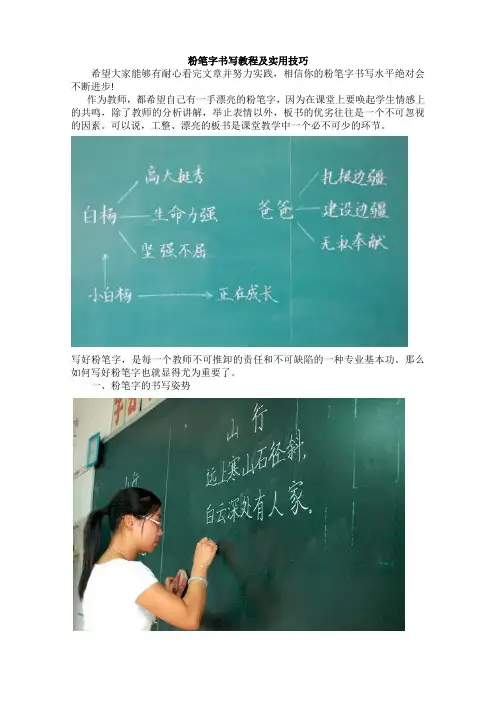 粉笔字书写教程及实用技巧
希望大家能够有耐心看完文章并努力实践，相信你的粉笔字书写水平绝对会
不断进步!
作为教师，都希望自己有一手漂亮的粉笔字，因为在课堂上要唤起学生情感上
的共鸣，除了教师的分析讲解，举止表情以外，板书的优劣往往是一个不可忽视
的因素。可以说，工整、漂亮的板书是课堂教学中一个必不可少的环节。
高大挺秀
白杨 生命力强
坚强不屈
小白杨 正在成长
扎根边疆
爸爸 建设边疆
无私奉献
写好粉笔字，是每一个教师不可推卸的责任和不可缺陷的一种专业基本功。那么
如何写好粉笔字也就显得尤为重要了。
一、粉笔字的书写姿势
学
山行
远上寒山石径斜，
白云深处有人家。